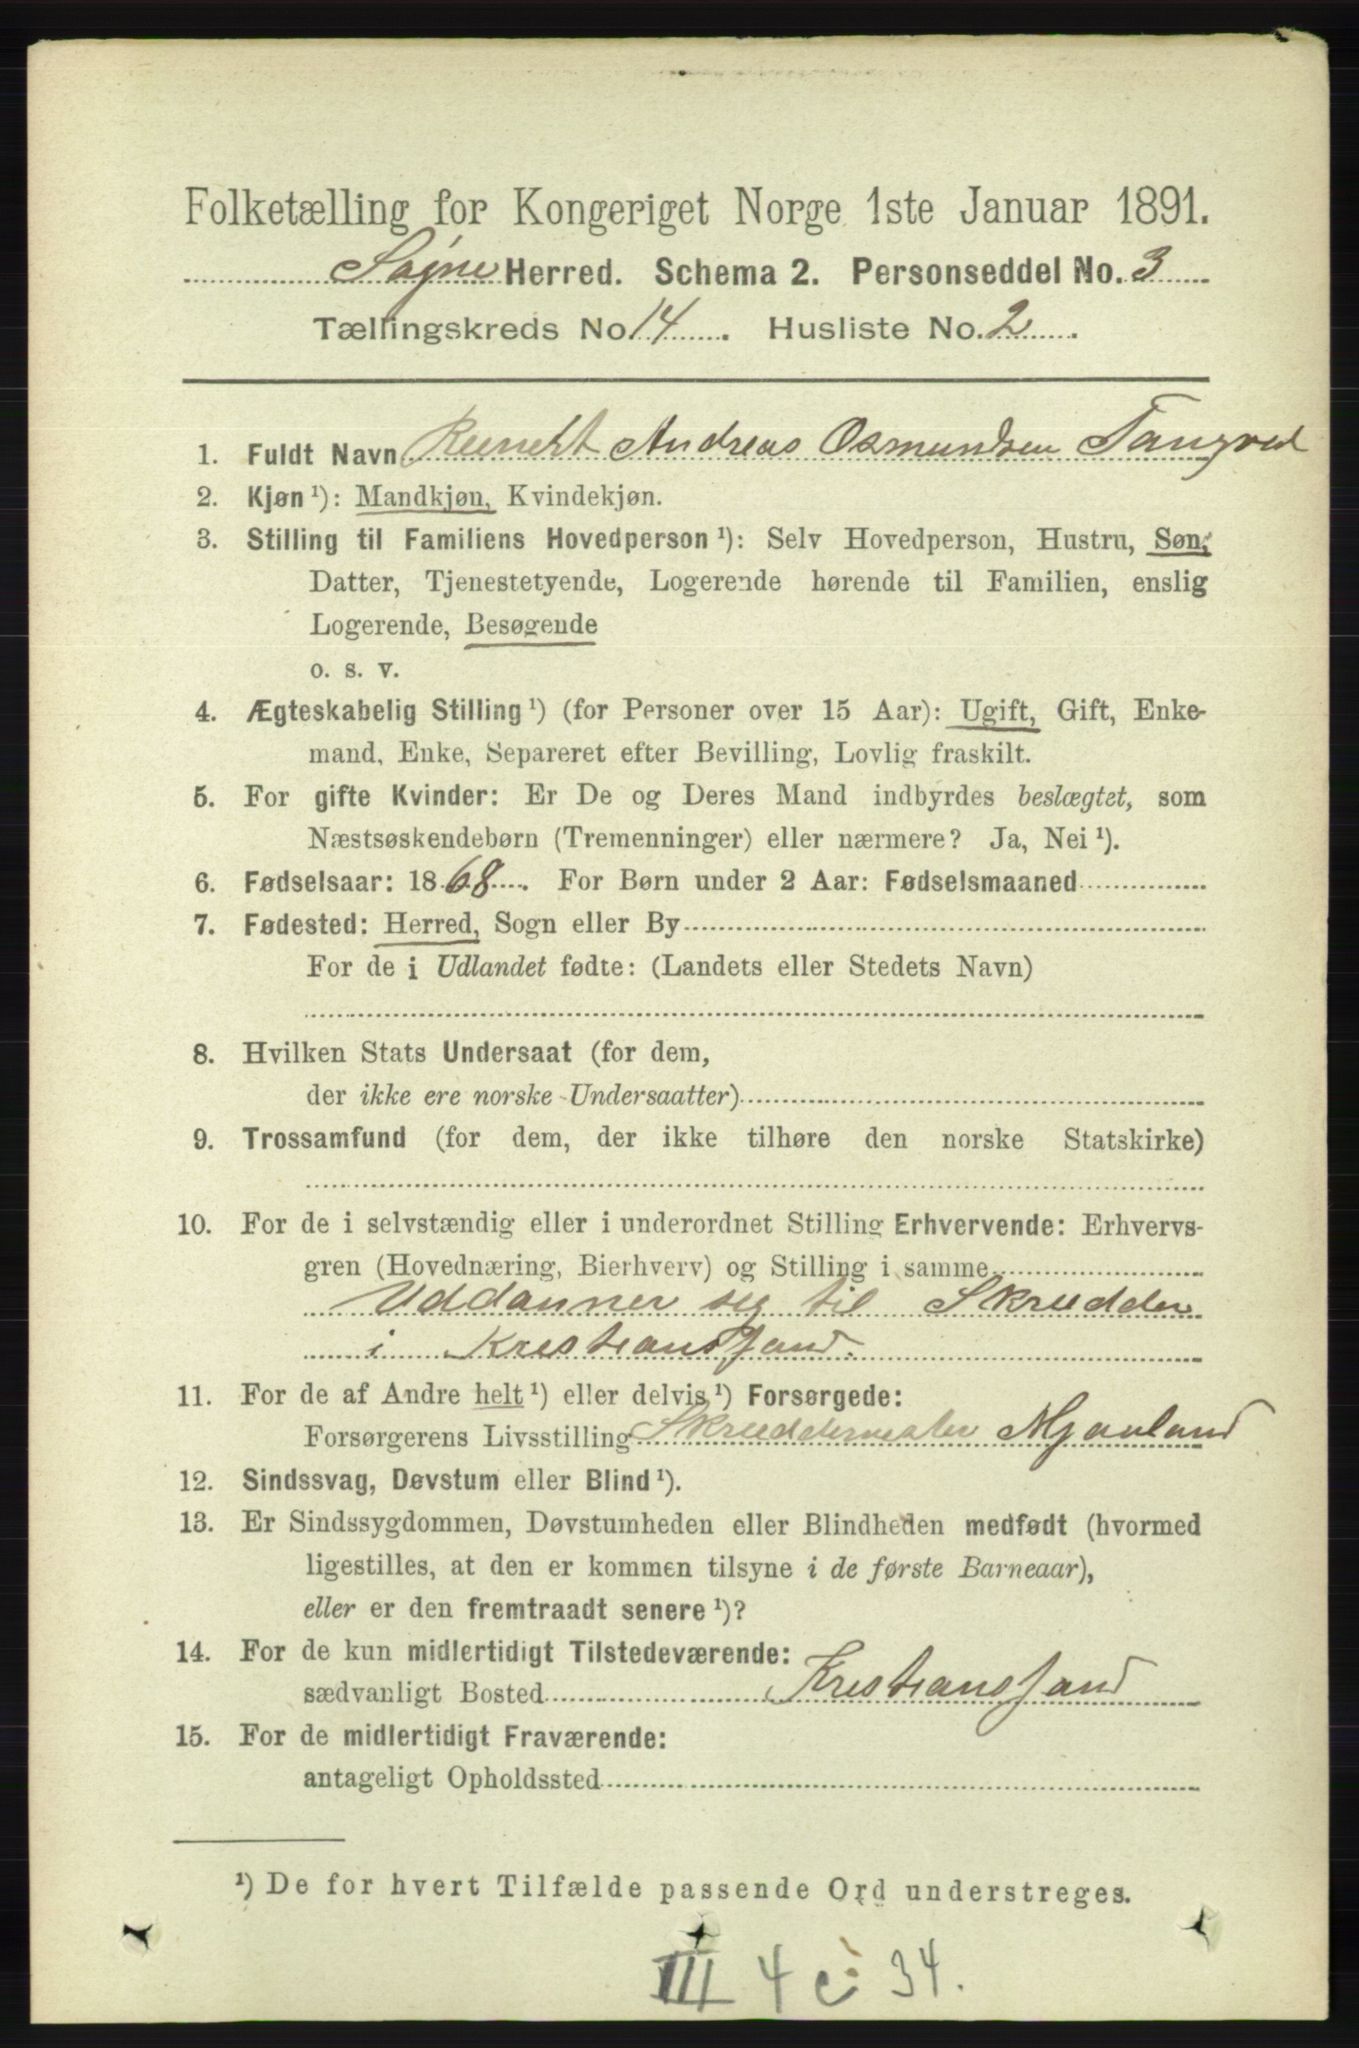 Folketælling for Kongeriget Norge 1ste Januar 1891.
Søgne Herred. Schema 2. Personseddel No. 3
Tællingskreds No. 14. Husliste No. 2.
1. Fuldt Navn Reinert Andreas Osmundsen Tangved
2. Kjøn ¹): Mandkjøn, Kvindekjøn.
3. Stilling til Familiens Hovedperson ¹): Selv Hovedperson, Hustru, Søn,
Datter, Tjenestetyende, Logerende hørende til Familien, enslig
Logerende, Besøgende
o. s. v.
4. Ægteskabelig Stilling ¹) (for Personer over 15 Aar): Ugift, Gift, Enke-
mand, Enke, Separeret efter Bevilling, Lovlig fraskilt.
5. For gifte Kvinder: Er De og Deres Mand indbyrdes beslægtet, som
Næstsøskendebørn (Tremenninger) eller nærmere? Ja, Nei ¹).
6. Fødselsaar: 1868. For Børn under 2 Aar: Fødselsmaaned
7. Fødested: Herred, Sogn eller By
For de i Udlandet fødte: (Landets eller Stedets Navn)
8. Hvilken Stats Undersaat (for dem,
der ikke ere norske Undersaatter)
9. Trossamfund (for dem, der ikke tilhøre den norske Statskirke)
10. For de i selvstændig eller i underordnet Stilling Erhvervende: Erhvervs-
gren (Hovednæring, Bierhverv) og Stilling i samme
Uddanner sig til Skrædder
i Kristianssand.
11. For de af Andre helt ¹) eller delvis ¹) Forsørgede:
Forsørgerens Livsstilling Skræddermester Mjanland
12. Sindssvag, Døvstum eller Blind ¹).
13. Er Sindssygdommen, Døvstumheden eller Blindheden medfødt (hvormed
ligestilles, at den er kommen tilsyne i de første Barneaar),
eller er den fremtraadt senere ¹)?
14. For de kun midlertidigt Tilstedeværende:
sædvanligt Bosted Kristianssand
15. For de midlertidigt Fraværende:
antageligt Opholdssted
¹) De for hvert Tilfælde passende Ord understreges.
III 4 c: 34.